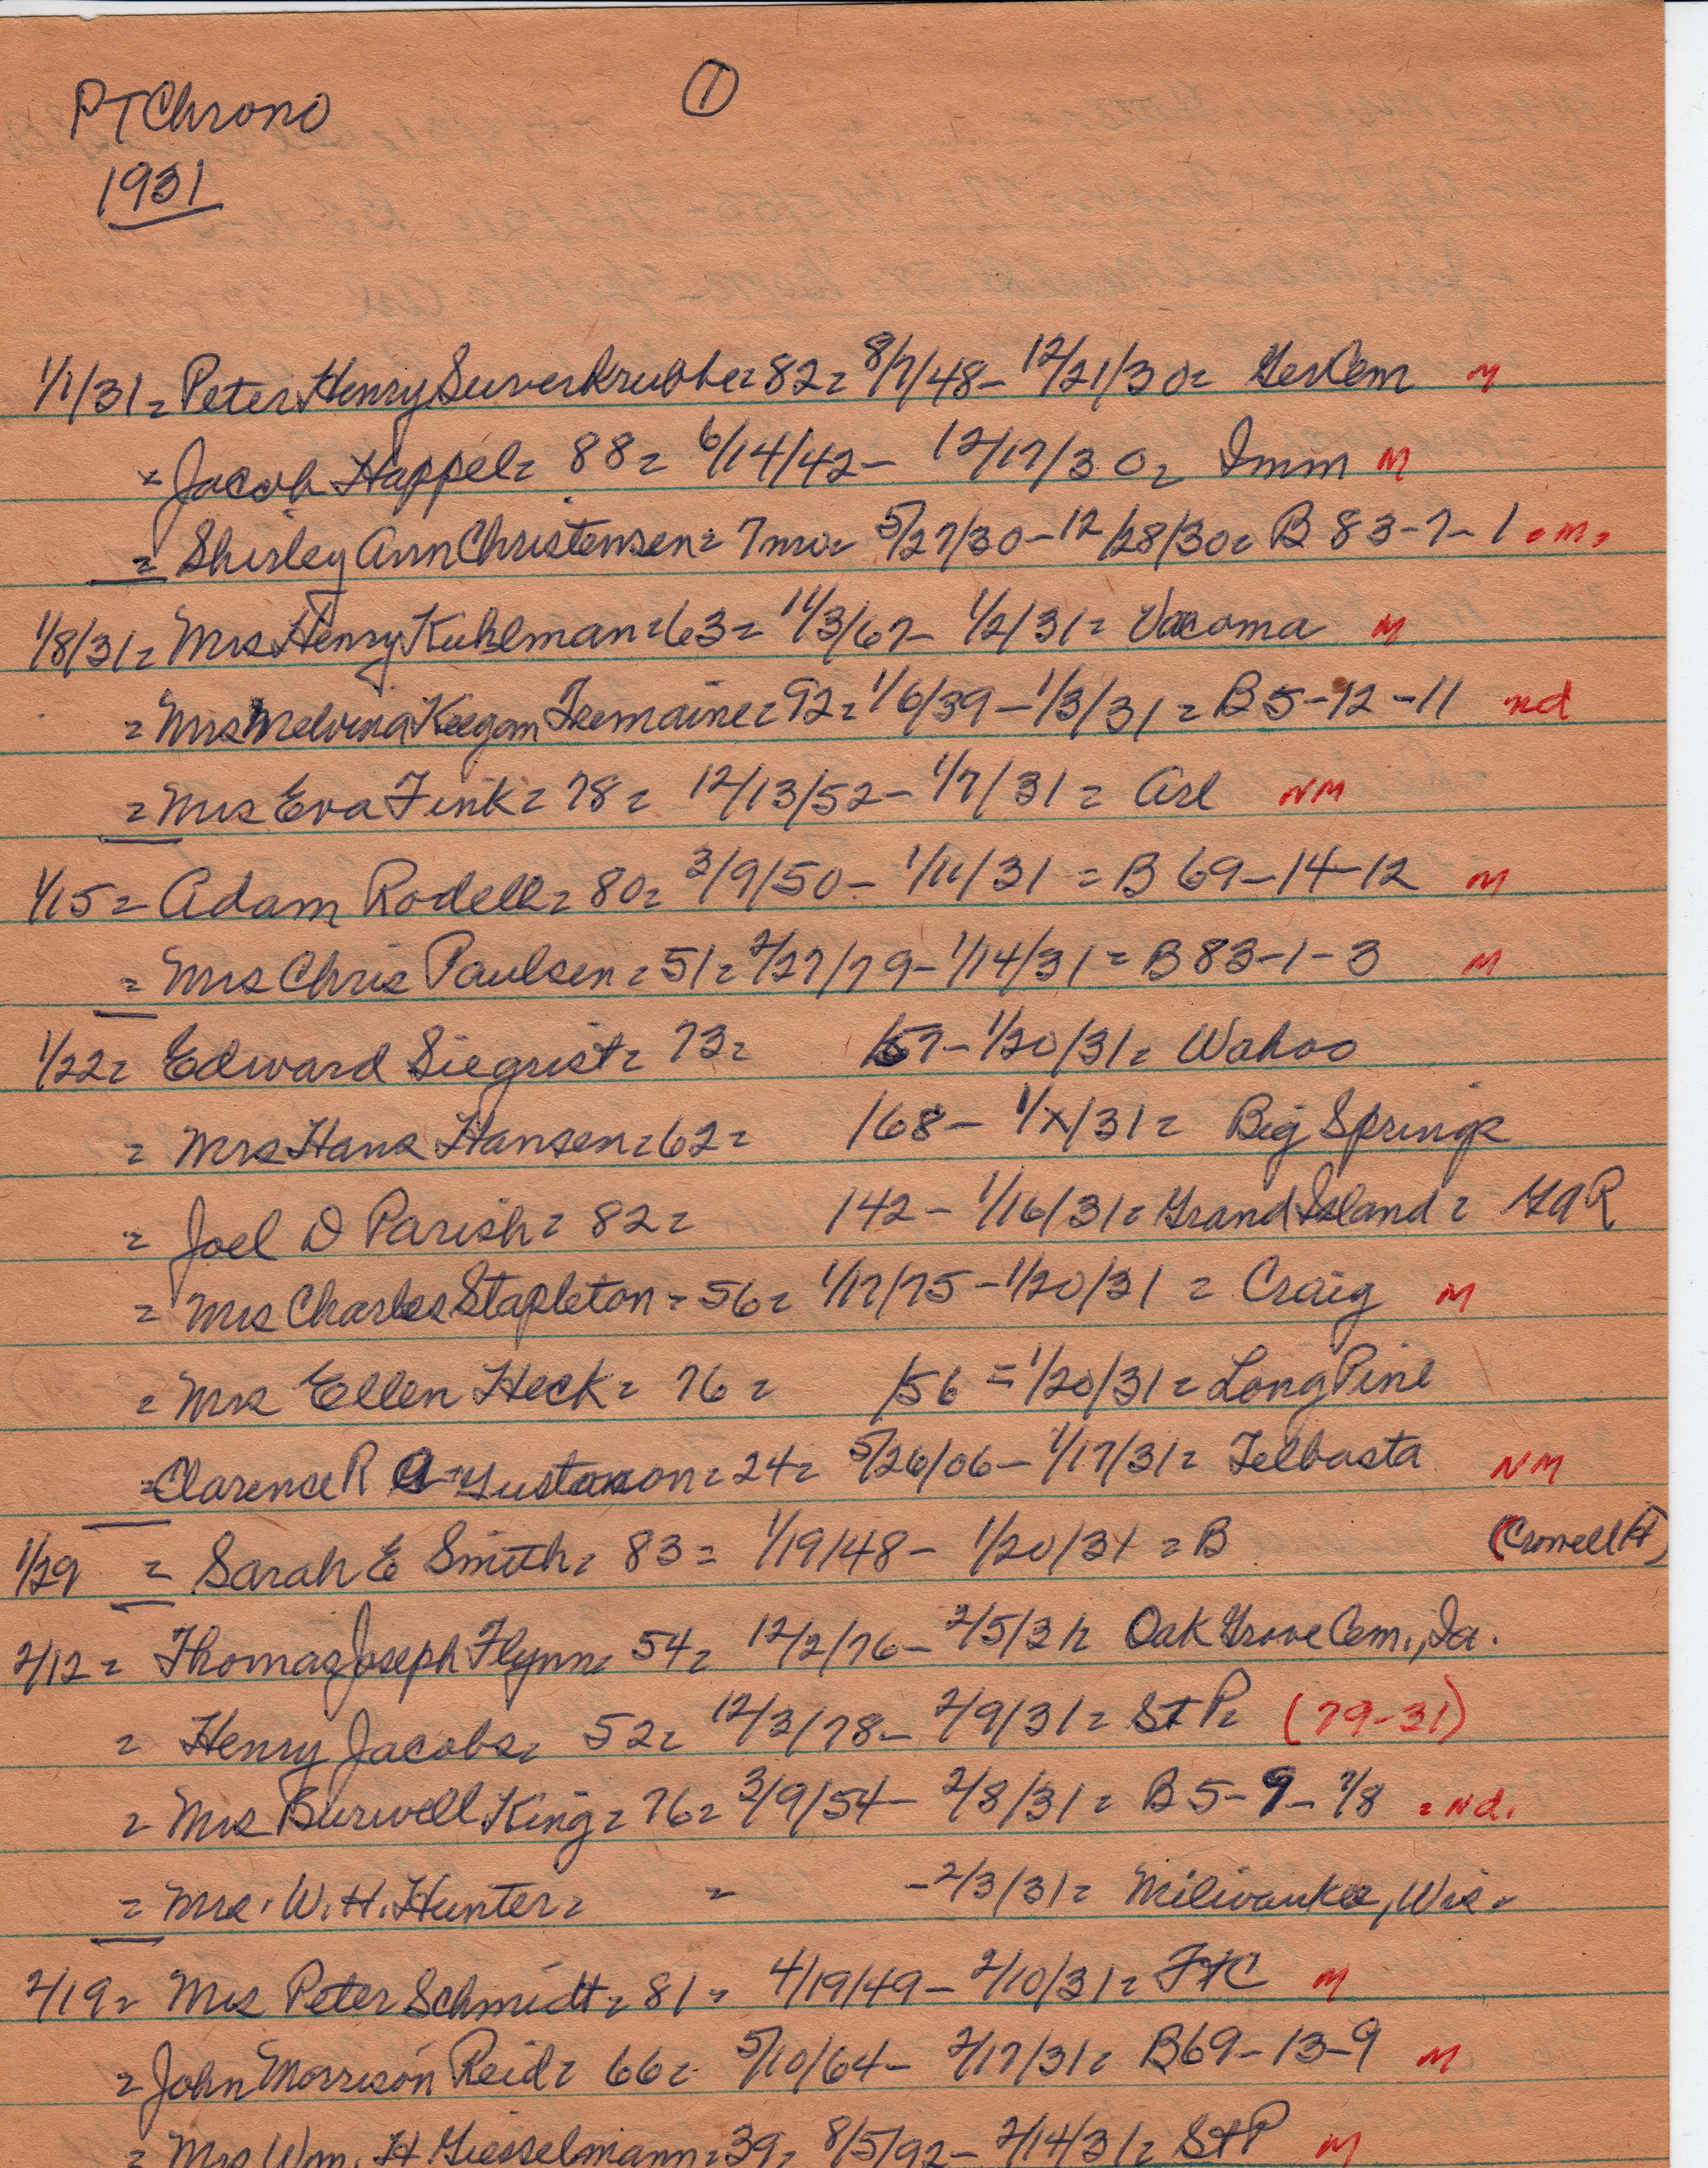 PT Chrono ①
1931
1/1/31 = Peter Henry Suverkrubbe = 82 = 8/7/48 - 12/21/30 = Ger Cem M
= Jacob Happel = 88 = 6/14/42 - 12/17/30 = Imm M
= Shirley Ann Christensen = 7mo = 5/27/30 - 12/28/30 = B 83-7-1 = M.
1/8/31 = Mrs Henry Kuhlman = 63 = 11/3/67 - 1/2/31 = Vacoma M
= Mrs Melvina Keegan Tremaine = 92 = 1/6/39 - 1/3/31 = B 5-12-11 nd
= Mrs Eva Fink = 78 = 12/13/52 - 1/7/31 = Arl NM
1/15 = Adam Rodell = 80 = 3/9/50 - 1/11/31 = B 69-14-12 M
= Mrs Chris Paulsen = 51 = 2/27/79 - 1/14/31 = B 83-1-3 M
1/22 = Edward Siegrist = 73 = /57 - 1/20/31 = Wahoo
= Mrs Hans Hansen = 62 = /68 - 1/x/31 = Big Springs
= Joel D Parish = 82 = /42 - 1/16/31 = Grand Island = GAR
= Mrs Charles Stapleton = 56 = 1/17/75 - 1/20/31 = Craig M
= Mrs Ellen Heck = 76 = /56 = 1/20/31 = Long Pine
= Clarence R Gustavson = 24 = 5/26/06 - 1/17/31 = Telbasta NM
1/29 = Sarah E Smith = 83 = 1/19/48 - 1/20/31 = B (Crowell H)
2/12 = Thomas Joseph Flynn = 54 = 12/2/76 - 2/5/31 = Oak Grove Cem., Ia.
= Henry Jacobs = 52 = 12/3/78 - 2/9/31 = St P = (79-31)
= Mrs Burwell King = 76 = 3/9/54 - 2/8/31 = B 5-9-7/8 = nd.
= Mrs. W. H. Hunter = = - 2/3/31 = Milwaukee, Wis.
2/19 = Mrs Peter Schmidt = 81 = 4/19/49 - 2/10/31 = FtC M
= John Morrison Reid = 66 = 5/10/64 - 2/17/31 = B 69-13-9 M
= Mrs Wm. H Giesselmann = 39 = 8/5/92 - 2/14/31 = St P M